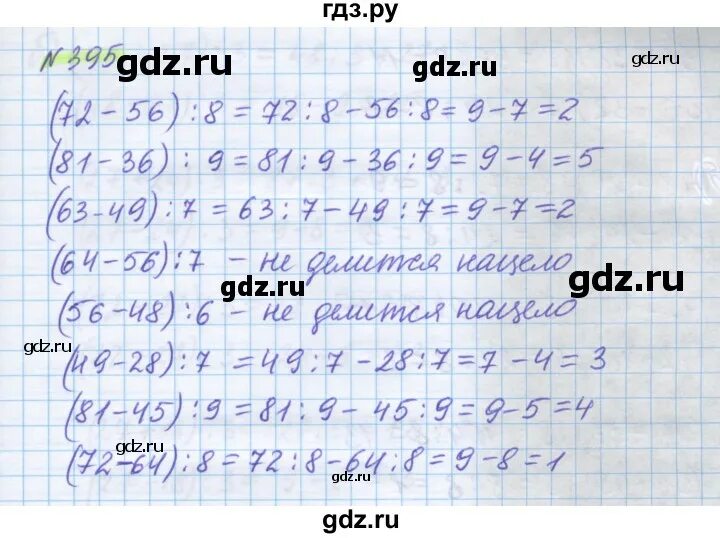 гдз.ру
№395
gdz.ru
gdz.ru
(72-56):8=72:8-56:8=9-7=2
(81-36):9=81:9-36:9=9-4=5
(63-49):7=63:7-49:7=9-7=2
(64-56):7 - не делится нацело
gdz.ru
gdz.ru
(56-48):6 - не делится нацело
gdz.ru
(49-28):7=49:7-28:7=7-4=3
(81-45):9=81:9-45:9=9-5=4
gdz.ru
(72-64):8=72:8-64:8=9-8=1
gdz.ru
gdz.ru
gdz.ru